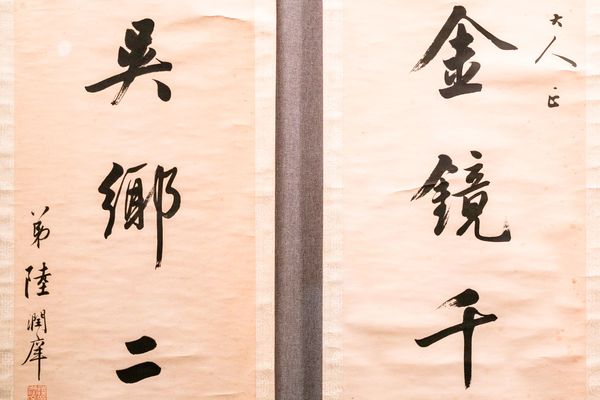 大人正
金鏡千
吳鄉二
弟陸潤庠